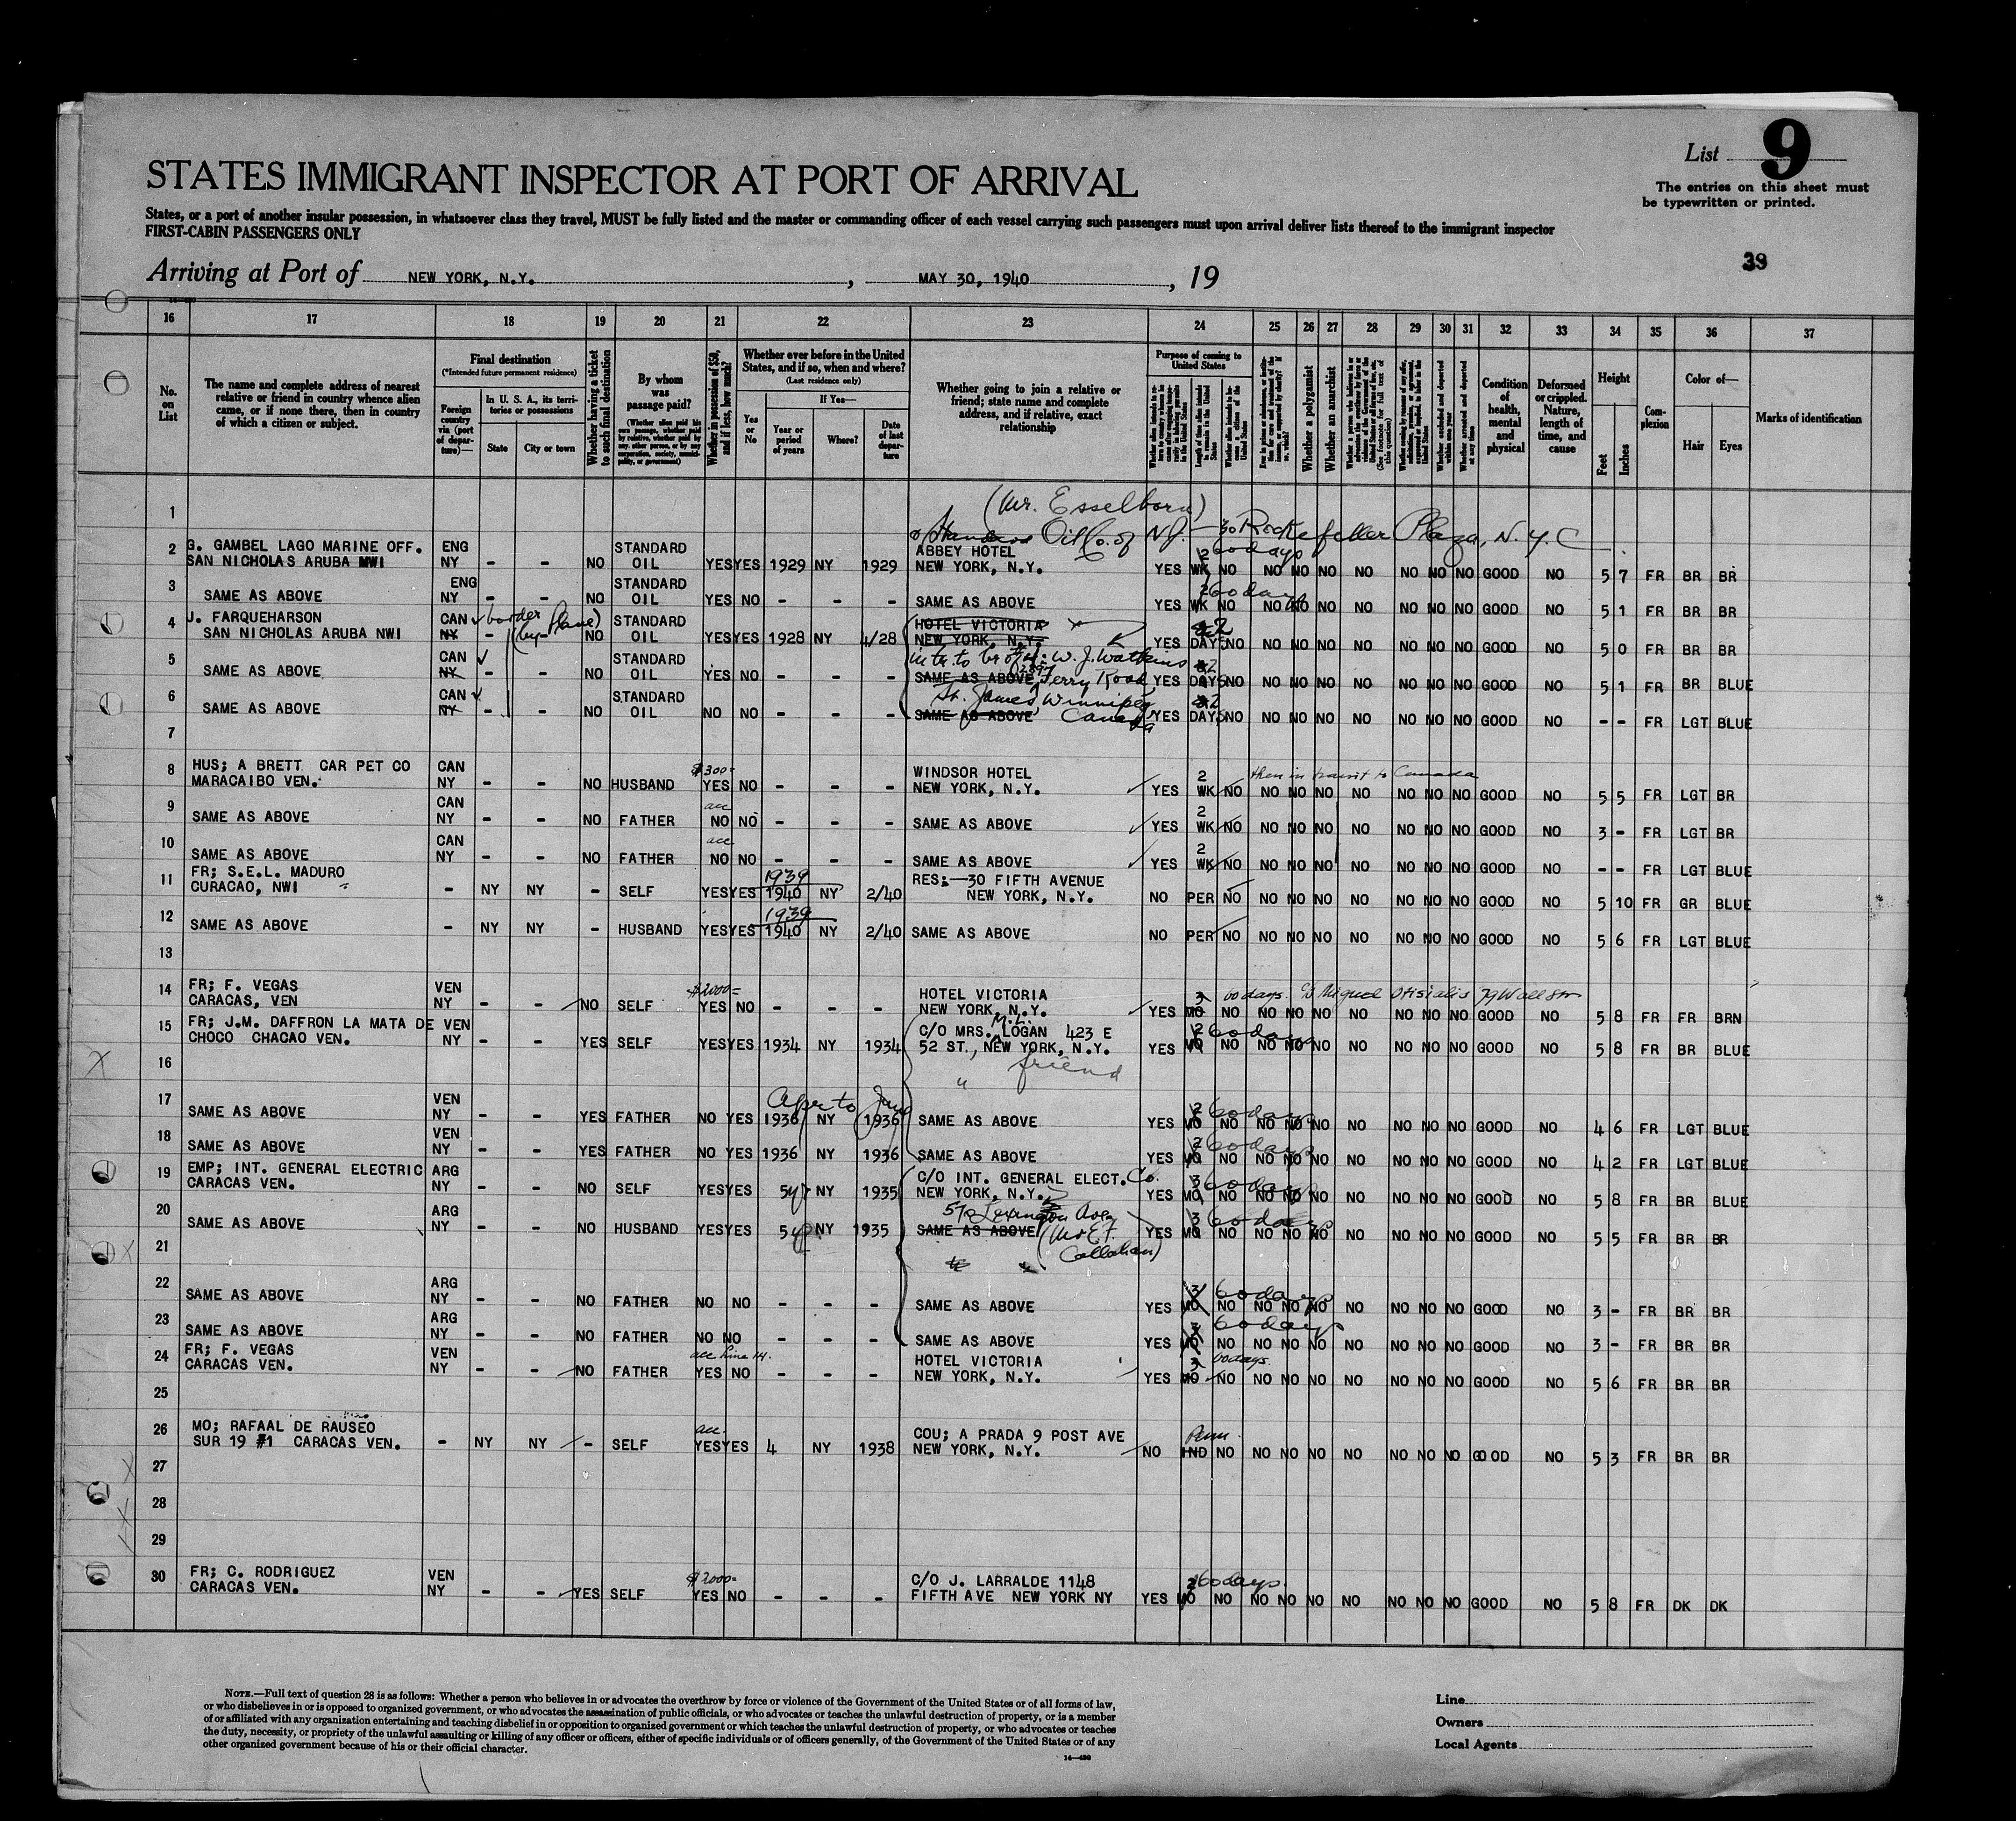 List 9
The entries on this sheet must
be typewritten or printed.
STATES IMMIGRANT INSPECTOR AT PORT OF ARRIVAL
States, or a port of another insular possession, in whatsoever class they travel, MUST be fully listed and the master or commanding officer of each vessel carrying such passengers must upon arrival deliver lists thereof to the immigrant inspector
FIRST-CABIN PASSENGERS ONLY
39
Arriving at Port of NEW YORK, N.Y. , MAY 30, 1940 , 19
16 17 18 19 20 21 22 23 24 25 26 27 28 29 30 31 32 33 34 35 36 37
No. on List
The name and complete address of nearest relative or friend in country whence alien came, or if none there, then in country of which a citizen or subject.
Final destination
(*Intended future permanent residence)
Foreign country via (port of departure)—
In U. S. A., its territories or possessions
State City or town
Whether having a ticket to such final destination
By whom was passage paid?
(Whether alien paid his own passage, whether paid by relative, whether paid by any other person, or by any corporation, society, municipality, or government)
Whether in possession of $50, and if less, how much?
Whether ever before in the United States, and if so, when and where?
(Last residence only)
Yes or No
If Yes—
Year or period of years Where? Date of last departure
Whether going to join a relative or friend; state name and complete address, and if relative, exact relationship
Purpose of coming to United States
Whether a polygamist
Whether an anarchist
Condition of health, mental and physical
Deformed or crippled. Nature, length of time, and cause
Height
Feet Inches
Complexion
Color of—
Hair Eyes
Marks of identification
1 (Mr. Esselborn)
Oil Co. of NJ. — 30 Rockefeller Plaza, N.Y.C
2 G. GAMBEL LAGO MARINE OFF. ENG STANDARD ABBEY HOTEL 2 60 days
SAN NICHOLAS ARUBA NWI NY - - NO OIL YES YES 1929 NY 1929 NEW YORK, N.Y. YES WK NO NO NO NO NO NO NO NO GOOD NO 5 7 FR BR BR
3 ENG STANDARD 2 60 days
SAME AS ABOVE NY - - NO OIL YES NO - - - SAME AS ABOVE YES WK NO NO NO NO NO NO NO NO GOOD NO 5 1 FR BR BR
4 J. FARQUEHARSON CAN border STANDARD HOTEL VICTORIA 2
SAN NICHOLAS ARUBA NWI NY - (by Plane) NO OIL YES YES 1928 NY 4/28 NEW YORK, N.Y. YES DAYS NO NO NO NO NO NO NO NO GOOD NO 5 0 FR BR BR
5 CAN STANDARD W. J. Watkins 2
SAME AS ABOVE NY - - NO OIL YES NO - - - SAME AS ABOVE Ferry Road YES DAYS NO NO NO NO NO NO NO NO GOOD NO 5 1 FR BR BLUE
6 CAN STANDARD St. James Winnipeg 2
SAME AS ABOVE NY - - NO OIL NO NO - - - SAME AS ABOVE Canada YES DAYS NO NO NO NO NO NO NO NO GOOD NO - - FR LGT BLUE
7
8 HUS; A BRETT CAR PET CO CAN $300= WINDSOR HOTEL 2 then in transit to Canada
MARACAIBO VEN. NY - - NO HUSBAND YES NO - - - NEW YORK, N.Y. YES WK NO NO NO NO NO NO NO NO GOOD NO 5 5 FR LGT BR
9 CAN acc 2
SAME AS ABOVE NY - - NO FATHER NO NO - - - SAME AS ABOVE YES WK NO NO NO NO NO NO NO NO GOOD NO 3 - FR LGT BR
10 CAN acc 2
SAME AS ABOVE NY - - NO FATHER NO NO - - - SAME AS ABOVE YES WK NO NO NO NO NO NO NO NO GOOD NO - - FR LGT BLUE
11 FR; S.E.L. MADURO 1939 RES;—30 FIFTH AVENUE
CURACAO, NWI - NY NY - SELF YES YES 1940 NY 2/40 NEW YORK, N.Y. NO PER NO NO NO NO NO NO NO NO GOOD NO 5 10 FR GR BLUE
12 1939
SAME AS ABOVE - NY NY - HUSBAND YES YES 1940 NY 2/40 SAME AS ABOVE NO PER NO NO NO NO NO NO NO NO GOOD NO 5 6 FR LGT BLUE
13
14 FR; F. VEGAS VEN $2000= HOTEL VICTORIA 3 60 days. c/o Miguel 79 Wall Str
CARACAS, VEN NY - - NO SELF YES NO - - - NEW YORK, N.Y. YES MO NO NO NO NO NO NO NO NO GOOD NO 5 8 FR FR BRN
15 FR; J.M. DAFFRON LA MATA DE VEN C/O MRS. M.L. LOGAN 423 E 2 60 days
CHOCO CHACAO VEN. NY - - YES SELF YES YES 1934 NY 1934 52 ST., NEW YORK, N.Y. YES MO NO NO NO NO NO NO NO NO GOOD NO 5 8 FR BR BLUE
16 " friend
17 VEN Apr to June 2 60 days
SAME AS ABOVE NY - - YES FATHER NO YES 1936 NY 1936 SAME AS ABOVE YES MO NO NO NO NO NO NO NO NO GOOD NO 4 6 FR LGT BLUE
18 VEN 2 60 days
SAME AS ABOVE NY - - YES FATHER NO YES 1936 NY 1936 SAME AS ABOVE YES MO NO NO NO NO NO NO NO NO GOOD NO 4 2 FR LGT BLUE
19 EMP; INT. GENERAL ELECTRIC ARG C/O INT. GENERAL ELECT. Co. 3 60 days
CARACAS VEN. NY - - NO SELF YES YES 5y NY 1935 NEW YORK, N.Y. YES MO NO NO NO NO NO NO NO NO GOOD NO 5 8 FR BR BLUE
20 ARG 570 Lexington Ave 3 60 days
SAME AS ABOVE NY - - NO HUSBAND YES YES 5y NY 1935 SAME AS ABOVE (Mr E.F. YES MO NO NO NO NO NO NO NO NO GOOD NO 5 5 FR BR BR
21 Callahan)
22 ARG 3 60 days
SAME AS ABOVE NY - - NO FATHER NO NO - - - SAME AS ABOVE YES MO NO NO NO NO NO NO NO NO GOOD NO 3 - FR BR BR
23 ARG 3 60 days
SAME AS ABOVE NY - - NO FATHER NO NO - - - SAME AS ABOVE YES MO NO NO NO NO NO NO NO NO GOOD NO 3 - FR BR BR
24 FR; F. VEGAS VEN acc line 14. HOTEL VICTORIA 3 60 days.
CARACAS VEN. NY - - NO FATHER YES NO - - - NEW YORK, N.Y. YES MO NO NO NO NO NO NO NO NO GOOD NO 5 6 FR BR BR
25
26 MO; RAFAAL DE RAUSEO acc. COU; A PRADA 9 POST AVE Perm.
SUR 19 #1 CARACAS VEN. - NY NY - SELF YES YES 4 NY 1938 NEW YORK, N.Y. NO IND NO NO NO NO NO NO NO NO GOOD NO 5 3 FR BR BR
27
28
29
30 FR; C. RODRIGUEZ VEN $2000= C/O J. LARRALDE 1148 2 60 days.
CARACAS VEN. NY - - YES SELF YES NO - - - FIFTH AVE NEW YORK NY YES MO NO NO NO NO NO NO NO NO GOOD NO 5 8 FR DK DK
NOTE.—Full text of question 28 is as follows: Whether a person who believes in or advocates the overthrow by force or violence of the Government of the United States or of all forms of law,
or who disbelieves in or is opposed to organized government, or who advocates the assassination of public officials, or who advocates or teaches the unlawful destruction of property, or is a member
of or affiliated with any organization entertaining and teaching disbelief in or opposition to organized government or which teaches the unlawful destruction of property, or who advocates or teaches
the duty, necessity, or propriety of the unlawful assaulting or killing of any officer or officers, either of specific individuals or of officers generally, of the Government of the United States or of any
other organized government because of his or their official character.
14—430
Line
Owners
Local Agents